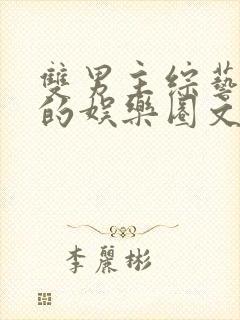 雙男主綜藝
的娛樂圈文
李麗彬